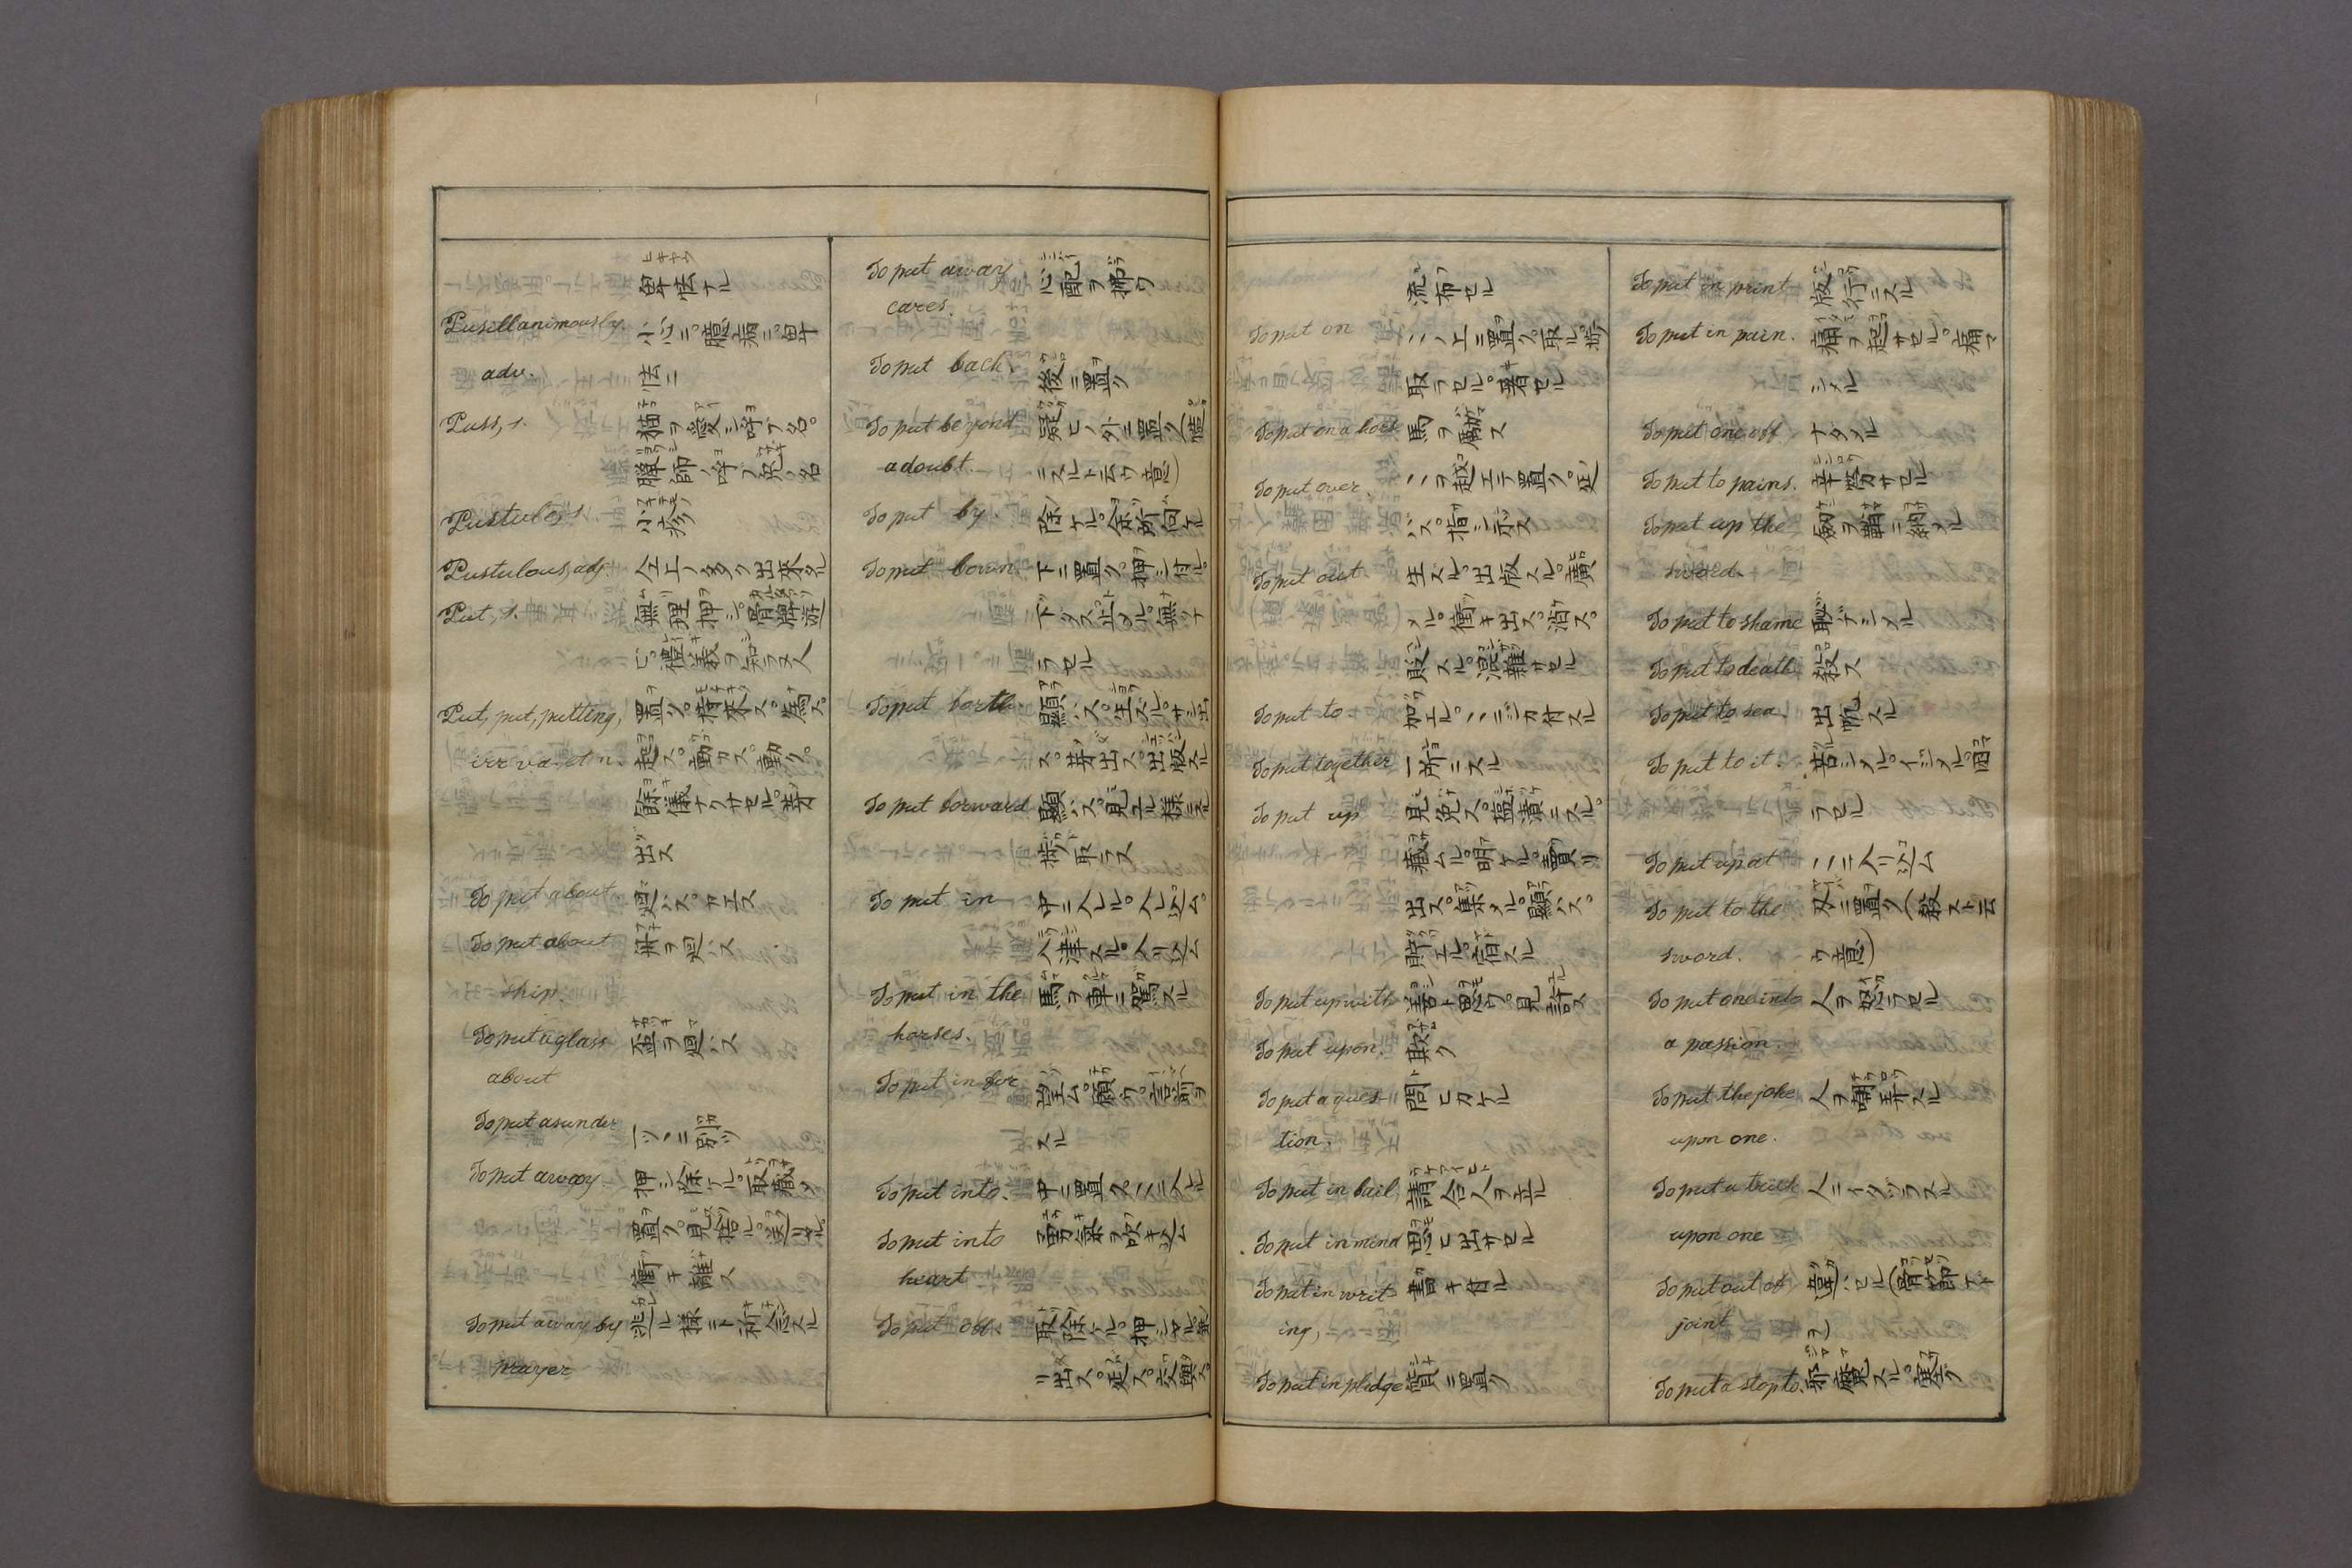 卑怯ナル
Pusillanimously. 小心ニ。臆病ニ。卑
adv. 怯ニ
Puss, s. 猫ヲ愛シ呼フ名。
獵師ノ呼フ兎ノ名
Pustule, s. 小疹
Pustulous, adj. 仝上ノ多ク出來タル
Put, s. 無理押シ。骨牌遊
ビ。禮義ヲ知ラヌ人
Put, put, putting, 置ク。持來ス。爲ス。
irr. v. a. et n. 起ス。動カス。動ク。
餘儀ナクサセル。芽
出ス
To put about 廻ハス。カエス
To put about 舟ヲ廻ハス
ship.
To put a glass 盃ヲ廻ハス
about
To put asunder 一ツヽニ別ツ
To put away. 押シ除ケル。取藏メ
置ク。見捨ル。送リヤル。
衝キ離ス
To put away by 逃ルル樣ニト祈念スル
prayer
To put away 心配ヲ拂ウ
cares.
To put back. 後ニ置ク
To put beyond 疑ヒノ外ニ置ク(慥
a doubt. ニスルト云ウ意)
To put by. 除ケル。余所ニ向ケル
To put down. 下ニ置ク。押シ付ル。
下ダス。止メル。無クナ
ラセル
To put forth. 顯ハス。生ズル。サシ出
ス。芽出ス。出版スル
To put forward 顯ハス。見エル樣ニスル
術ノ取ラス
To put in 中ニ入レル。入レ込ム。
入津スル。入リ込ム
To put in the 馬ヲ車ニ駕スル
horses.
To put in for. 望ム。願ウ。言訓ヲ
スル
To put into. 中ニ置ク。ヽニ入ル
To put into 勇氣ヲ吹キ込ム
heart
To put off. 取除ケル。押シヤル。
リ出ス。延ス。
流布セル
To put on ヽノ上ニ置ク。取ル。
取ラセル。著セル
To put on a horse 馬ヲ勵マス
To put over. ヽヲ越エテ置ク。延
バス。指シ示ス
To put out. 生ズル。出版スル。廣
メル。衝キ出ス。消ス。
貶スル。混雜サセル
To put to 加エル。ヽニ
To put together 一所ニスル
To put up 見免ス。鹽漬ニスル。
藏ムル。明ケル。賣リ
出ス。集メル。顯ハス。
貯エル。宿スル
To put up with 善ト思ウ。見許ス
To put upon. 欺ク
To put a ques- 問ヒカケル
tion.
To put in bail 請合人ヲ立ル
To put in mind 思ヒ出サセル
To put in writ- 書キ付ル
ing,
To put in pledge 質ニ置ク
To put in print 版行ニスル
To put in pain. 痛ヲ起サセル。痛マ
シメル
To put one off ナダメル
To put to pains. 辛勞サセル
To put up the 劔ヲ鞘ニ納メル
sword.
To put to shame 耻ヂシメル
To put to death 殺ス
To put to sea. 出帆スル
To put to it. 苦シメル。イジメル。困
ラセル
To put up at ヽニ入リ込ム
To put to the 刃ニ置ク(殺スト云
sword. ウ意)
To put one into 人ヲ怒ラセル
a passion.
To put the joke 人ヲ嘲弄スル
upon one.
To put a trick 人ニイタヅラスル
upon one
To put out of 違ハセル(骨節ナト
joint ヲ)
To put a stop to. 邪魔スル。塞グ